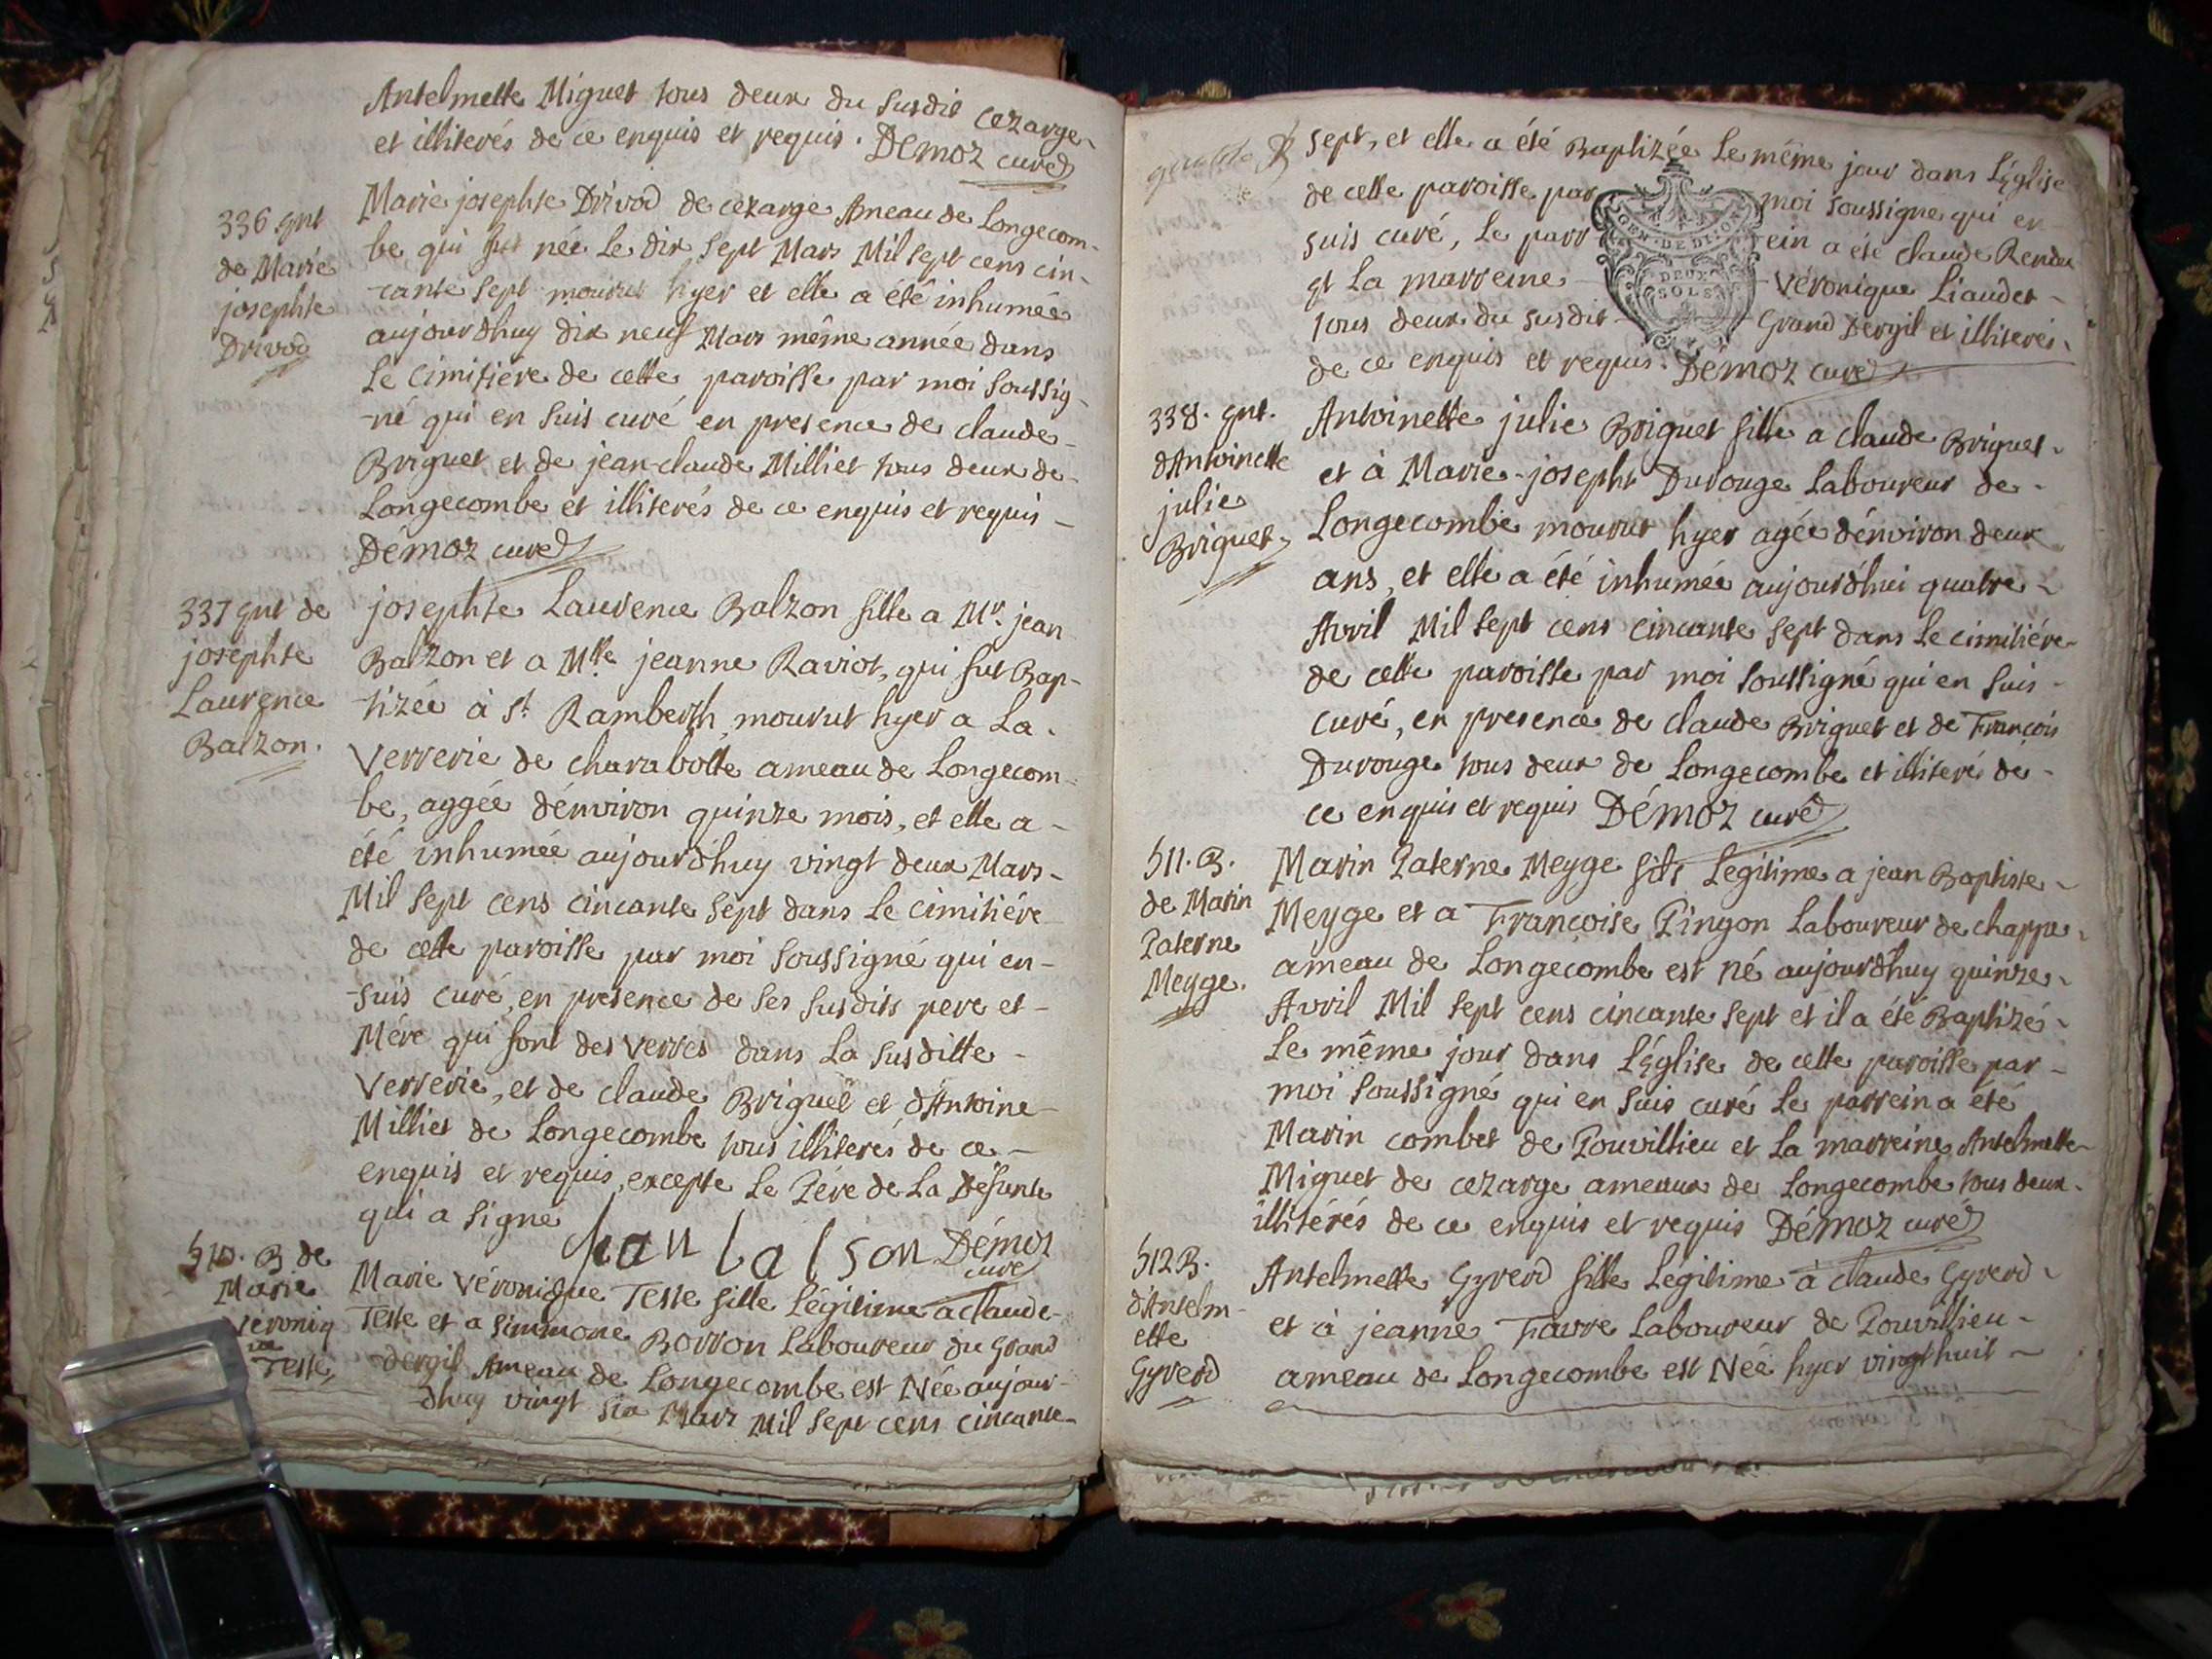 Antelmette Miguet tous deux du susdit cezarge
et illiterés de ce enquis et requis. Démoz curé
336 gnt
de Marie
josephte
Drivod
Marie josephte Drivod de cezarge Ameau de Longecom-
be, qui fut née Le dix sept Mars Mil sept cens cin-
-cante sept mourut hyer et elle a été inhumée
aujourdhuy dix neuf Mars même année dans
Le Cimitiére de cette paroisse par moi soussig-
-né qui en suis curé en presence de claude
Briguet et de jean-claude Milliet tous deux de
Longecombe et illiterés de ce enquis et requis -
Démoz curé
337 gnt de
josephte
Laurence
Balzon.
josephte Laurence Balzon fille a Mr. jean
Balzon et a Mlle jeanne Raviot, qui fut Bap-
-tizée à st. Ramberth, mourut hyer a La
Verrerie de charabotte ameau de Longecom-
be, aggée d'énviron quinze mois, et elle a -
été inhumée aujourdhuy vingt deux Mars -
Mil sept cens cincante sept dans Le cimitiére
de cette paroisse par moi soussigné qui en -
-suis curé, en presence de ses susdits pere et -
Mére qui font des verres dans La susditte -
Verrerie, et de claude Briguet et d'Antoine
Milliet de Longecombe tous illiterés de ce -
enquis et requis, excepte Le Pére de La Défunte
qui a signé
jean balson Démoz
curé
510. B de
Marie
Véroniq
ue
Teste,
Marie Véronique Teste fille Légitime a claude
Teste et a simmone Borron Laboureur du Grand
dergil Ameau de Longecombe est Née aujour-
-dhuy vingt six Mars Mil sept cens cincante -
sept, et elle a été Baptizée Le même jour dans L'église
de cette paroisse par moi soussigné qui en
suis curé, Le parrein a été claude Rendu
et La marreine - Véronique Liaudet -
tous deux du susdit - Grand Dergil et illiterés
GEN. DE DIJON
DEUX
SOLS
de ce enquis et requis. Démoz curé
338. gnt.
d'Antoinette
julie
Briguet
Antoinette julie Briguet fille a claude Briguet
et à Marie-josepht Durouge Laboureur de -
Longecombe mourut hyer agée d'énviron deux
ans, et elle a été inhumée aujourd'hui quatre -
Avril Mil sept cens cincante sept dans Le cimitiére
de cette paroisse par moi soussigné qui en suis -
curé, en presence de claude Briguet et de François
Durouge tous deux de Longecombe et illiteré de -
ce enquis et requis Démoz curé
511. B.
de Marin
Paterne
Meyge.
Marin Paterne Meyge fils Legitime a jean Baptiste -
Meyge et a Françoise Pingon Laboureur de chappe
ameau de Longecombe est né aujourdhuy quinze -
Avril Mil sept cens cincante sept et il a été Baptizé -
Le même jour dans L'église de cette paroisse par -
moi soussigné qui en suis curé Le parrein a été
Marin combet de Pouvillieu et La marreine Antelmette
Miguet de cezarge ameaux de Longecombe tous deux
illitérés de ce enquis et requis Démoz curé
512 B.
d'Antelm-
ette
Gyrerd
Antelmette Gyrerd fille Legitime à claude Gyrerd -
et à jeanne Favre Laboureur de Pouvillieu -
ameau de Longecombe est Née hyer vingt huit -